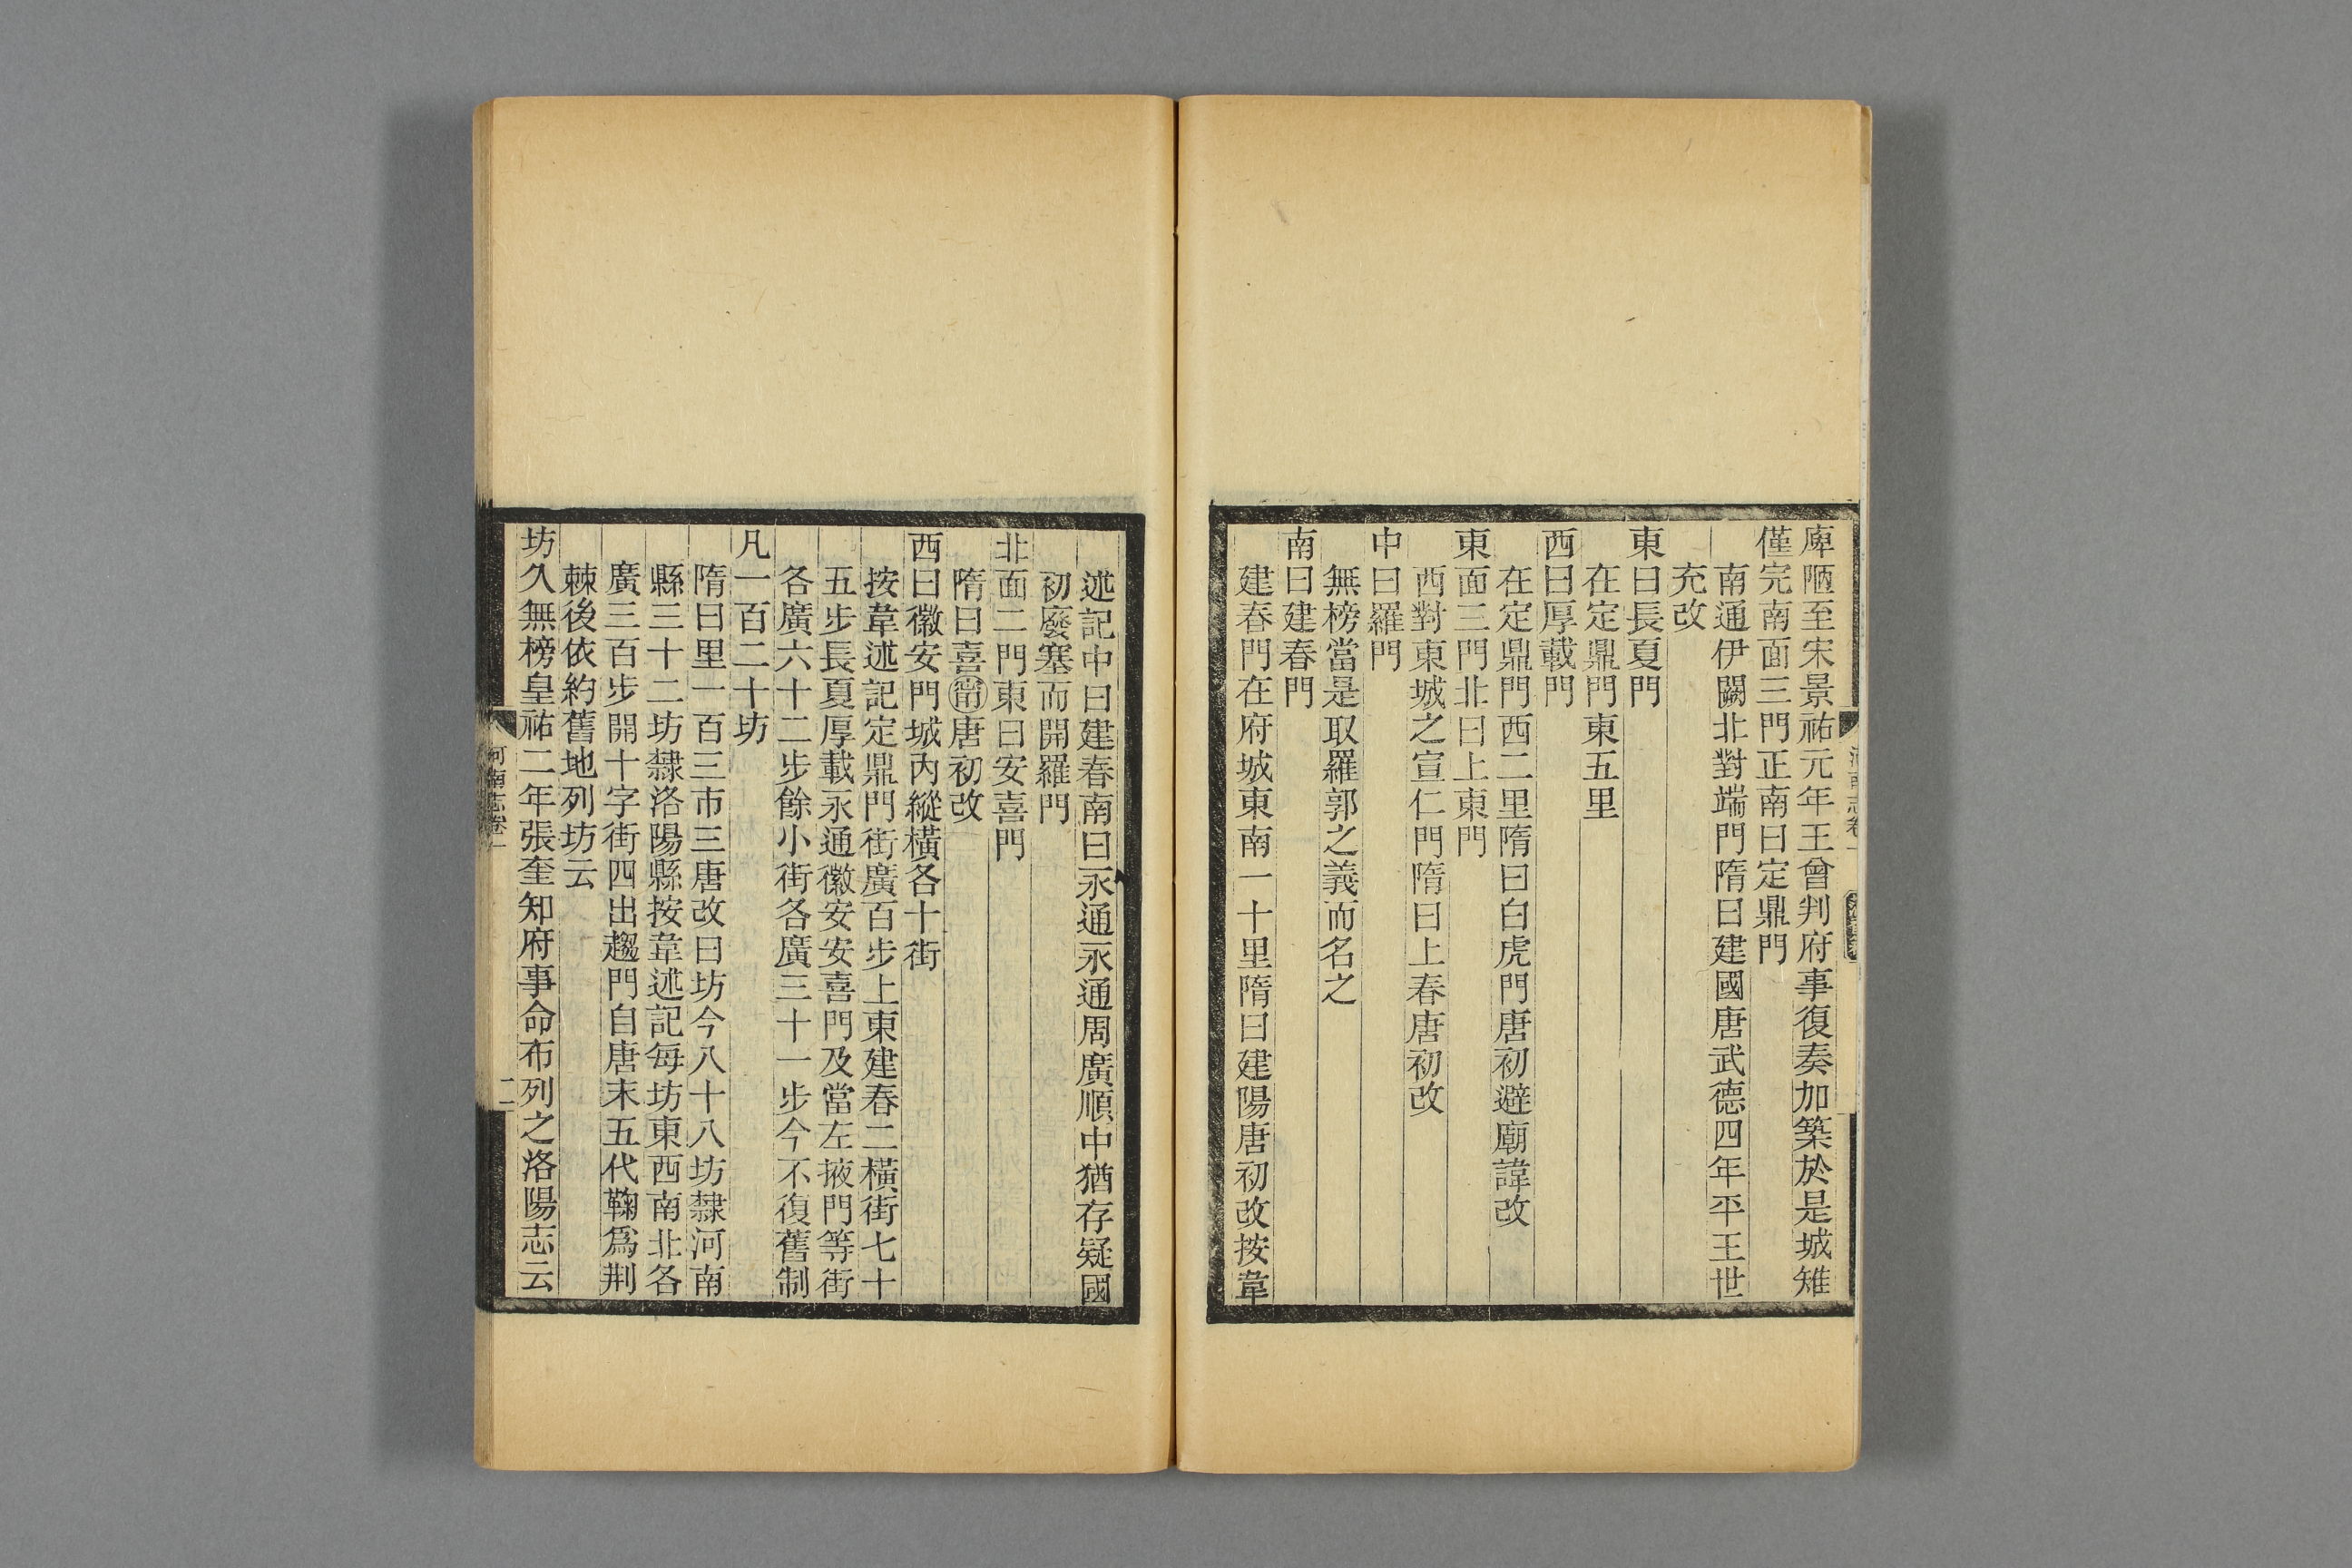 庳陋至宋景祐元年王曾判府事復奏加築於是城雉
僅完南面三門正南曰定鼎門
南通伊闕北對端門隋曰建國唐武德四年平王世
充改
東曰長夏門
在定鼎門東五里
西曰厚載門
在定鼎門西二里隋曰白虎門唐初避廟諱改
東面三門北曰上東門
西對東城之宣仁門隋曰上春唐初改
中曰羅門
無榜當是取羅郭之義而名之
南曰建春門
建春門在府城東南一十里隋曰建陽唐初改按韋
述記中曰建春南曰永通永通周廣順中猶存疑國
初廢塞而開羅門
北面二門東曰安喜門
隋曰喜甯唐初改
西曰徽安門城內縱橫各十街
按韋述記定鼎門街廣百步上東建春二橫街七十
五步長夏厚載永通徽安安喜門及當左掖門等街
各廣六十二步餘小街各廣三十一步今不復舊制
凡一百二十坊
隋曰里一百三市三唐改曰坊今八十八坊隸河南
縣三十二坊隸洛陽縣按韋述記每坊東西南北各
廣三百步開十字街四出趨門自唐末五代鞠爲荆
棘後依約舊地列坊云
坊久無榜皇祐二年張奎知府事命布列之洛陽志云
河南志卷一
二